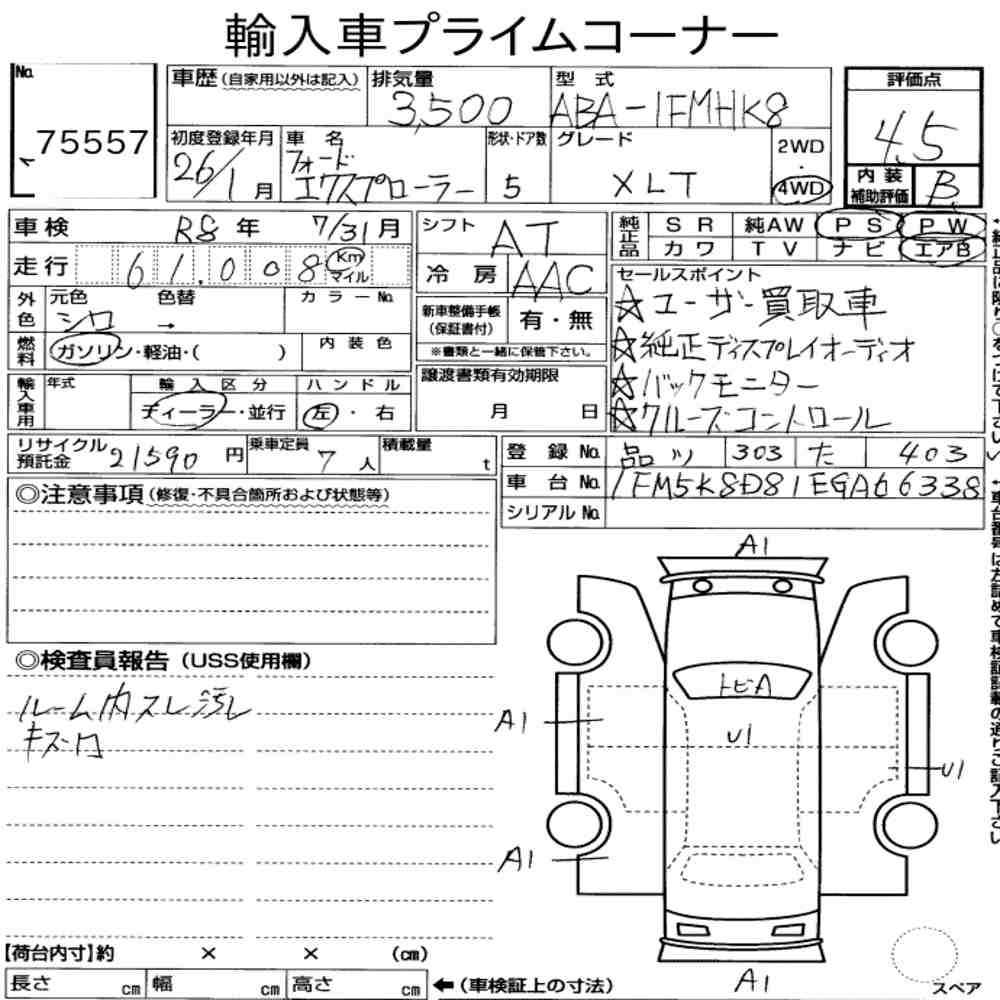 輸入車プライムコーナー
No.
75557
車歴(自家用以外は記入)
排気量
3,500
型式
ABA-1FMHK8
評価点
4.5
初度登録年月
26/1月
車名
フォード
エクスプローラー
形状・ドア数
5
グレード
XLT
2WD
・
4WD
内装
補助評価
B
車検
R8年 7/31月
シフト
AT
純正品
SR 純AW PS PW
カワ TV ナビ エアB
走行
61,008
Km
マイル
冷房
AAC
セールスポイント
☆ユーザー買取車
☆純正ディスプレイオーディオ
☆バックモニター
☆クルーズコントロール
外色
元色
シロ
色替
→
カラーNo.
新車整備手帳
(保証書付)
有・無
※書類と一緒に保管下さい。
燃料
ガソリン・軽油・( )
内装色
譲渡書類有効期限
月 日
輸入車用
年式
輸入区分
ディーラー・並行
ハンドル
左・右
リサイクル
預託金
21590円
乗車定員
7人
積載量
t
登録No.
品川 303 た 403
車台No.
1FM5K8D81EGA66338
シリアルNo.
◎注意事項(修復・不具合箇所および状態等)
◎検査員報告(USS使用欄)
ルーム内スレ汚レ
キズ穴
A1
トビA
A1
U1
U1
A1
A1
【荷台内寸】約 × × (cm)
長さ cm 幅 cm 高さ cm
←(車検証上の寸法)
スペア